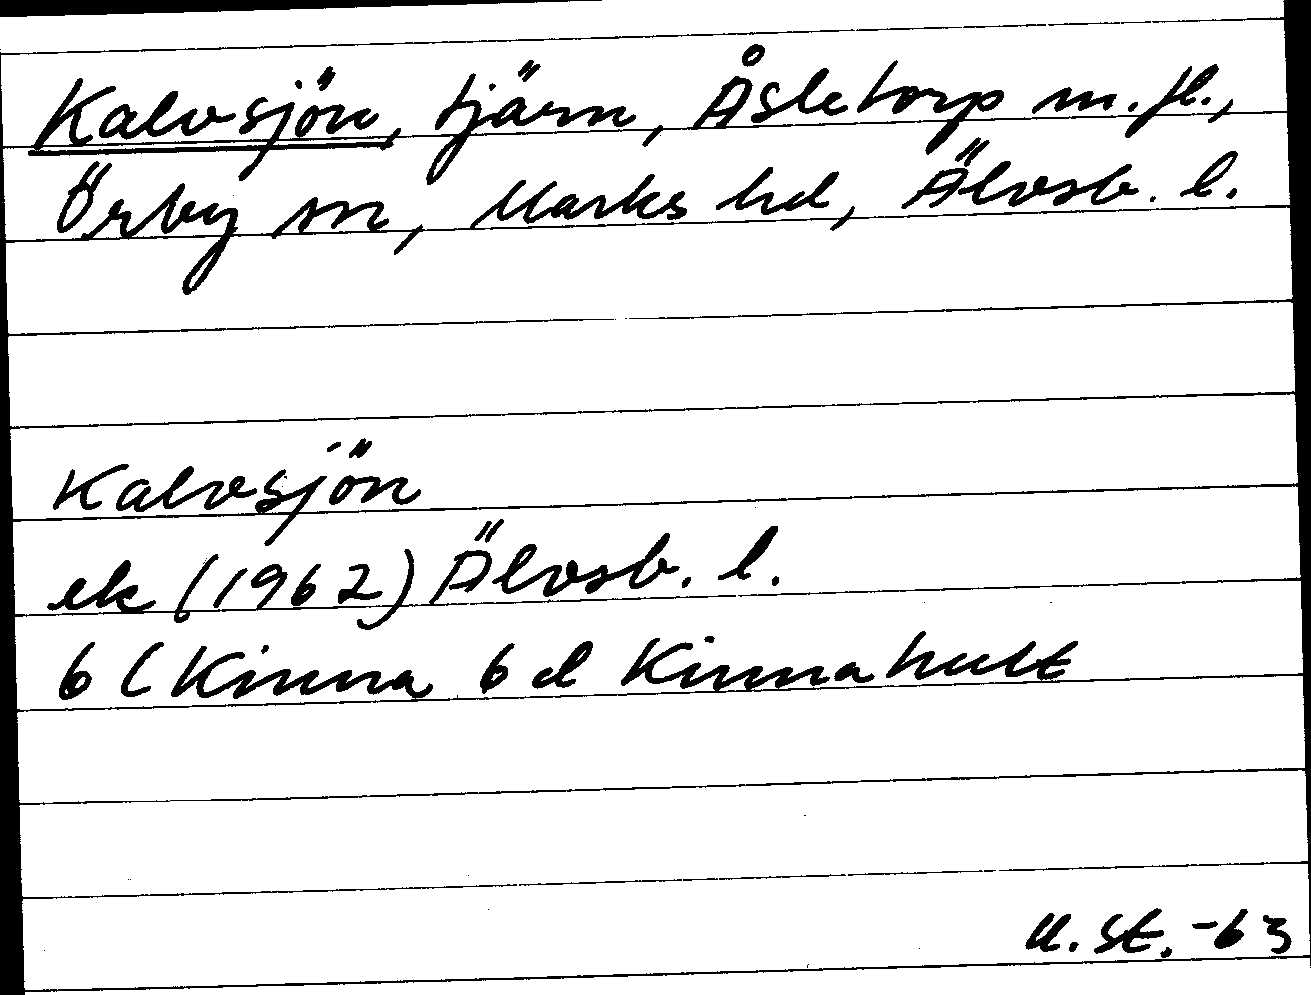 Kalvsjön, tjärn, Åsletorp m.fl.,
Örby sn, Marks hd, Älvsb. l.
Kalvsjön
ek (1962) Älvsb. l.
6 C Kinna 6 d Kinnahult
U. St. -63